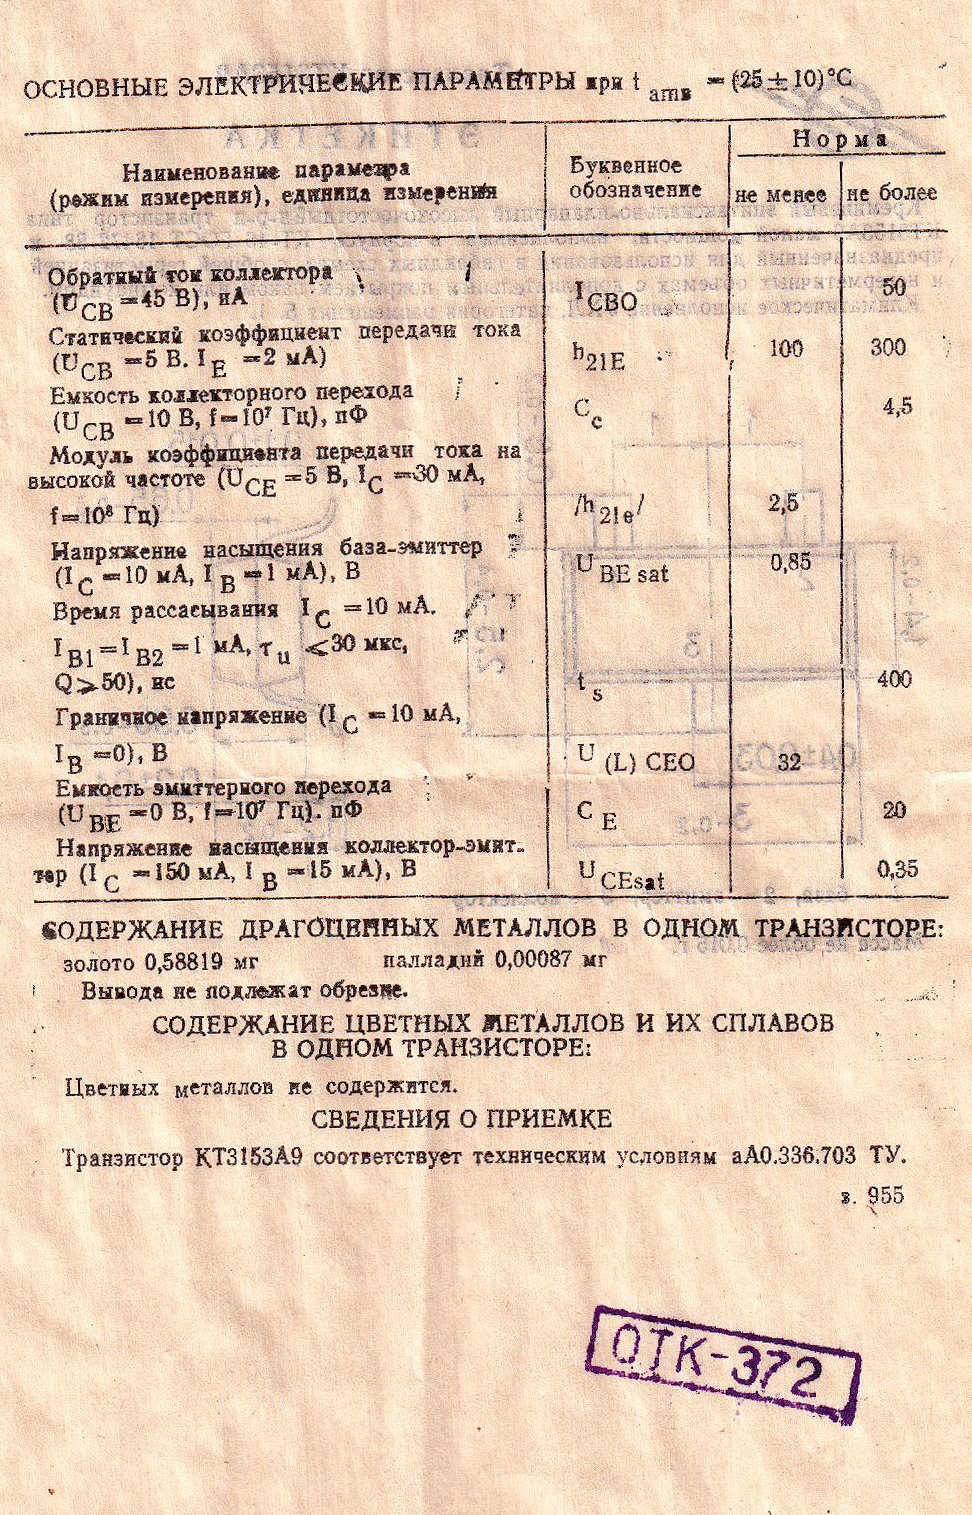 ОСНОВНЫЕ ЭЛЕКТРИЧЕСКИЕ ПАРАМЕТРЫ при t amв = (25 ± 10)°C
Наименование параметра (режим измерения), единица измерения
Буквенное обозначение
Норма
не менее не более
Обратный ток коллектора
(U CB = 45 В), нА I CBO 50
Статический коэффициент передачи тока
(U CB = 5 В. I E = 2 мА) h 21E 100 300
Емкость коллекторного перехода
(U CB = 10 В, f = 10⁷ Гц), пФ C c 4,5
Модуль коэффициента передачи тока на
высокой частоте (U CE = 5 В, I C = 30 мА,
f = 10⁸ Гц) /h 21e/ 2,5
Напряжение насыщения база-эмиттер
(I C = 10 мА, I B = 1 мА), В U BE sat 0,85
Время рассасывания I C = 10 мА.
I B1 = I B2 = 1 мА, τ u < 30 мкс,
Q ⩾ 50), нс t s 400
Граничное напряжение (I C = 10 мА,
I B = 0), В U (L) CEO 32
Емкость эмиттерного перехода
(U BE = 0 В, f = 10⁷ Гц). пФ C E 20
Напряжение насыщения коллектор-эмит-
тер (I C = 150 мА, I B = 15 мА), В U CEsat 0,35
СОДЕРЖАНИЕ ДРАГОЦЕННЫХ МЕТАЛЛОВ В ОДНОМ ТРАНЗИСТОРЕ:
золото 0,58819 мг палладий 0,00087 мг
Вывода не подлежат обрезке.
СОДЕРЖАНИЕ ЦВЕТНЫХ МЕТАЛЛОВ И ИХ СПЛАВОВ
В ОДНОМ ТРАНЗИСТОРЕ:
Цветных металлов не содержится.
СВЕДЕНИЯ О ПРИЕМКЕ
Транзистор КТ3153А9 соответствует техническим условиям аА0.336.703 ТУ.
з. 955
ОТК-372